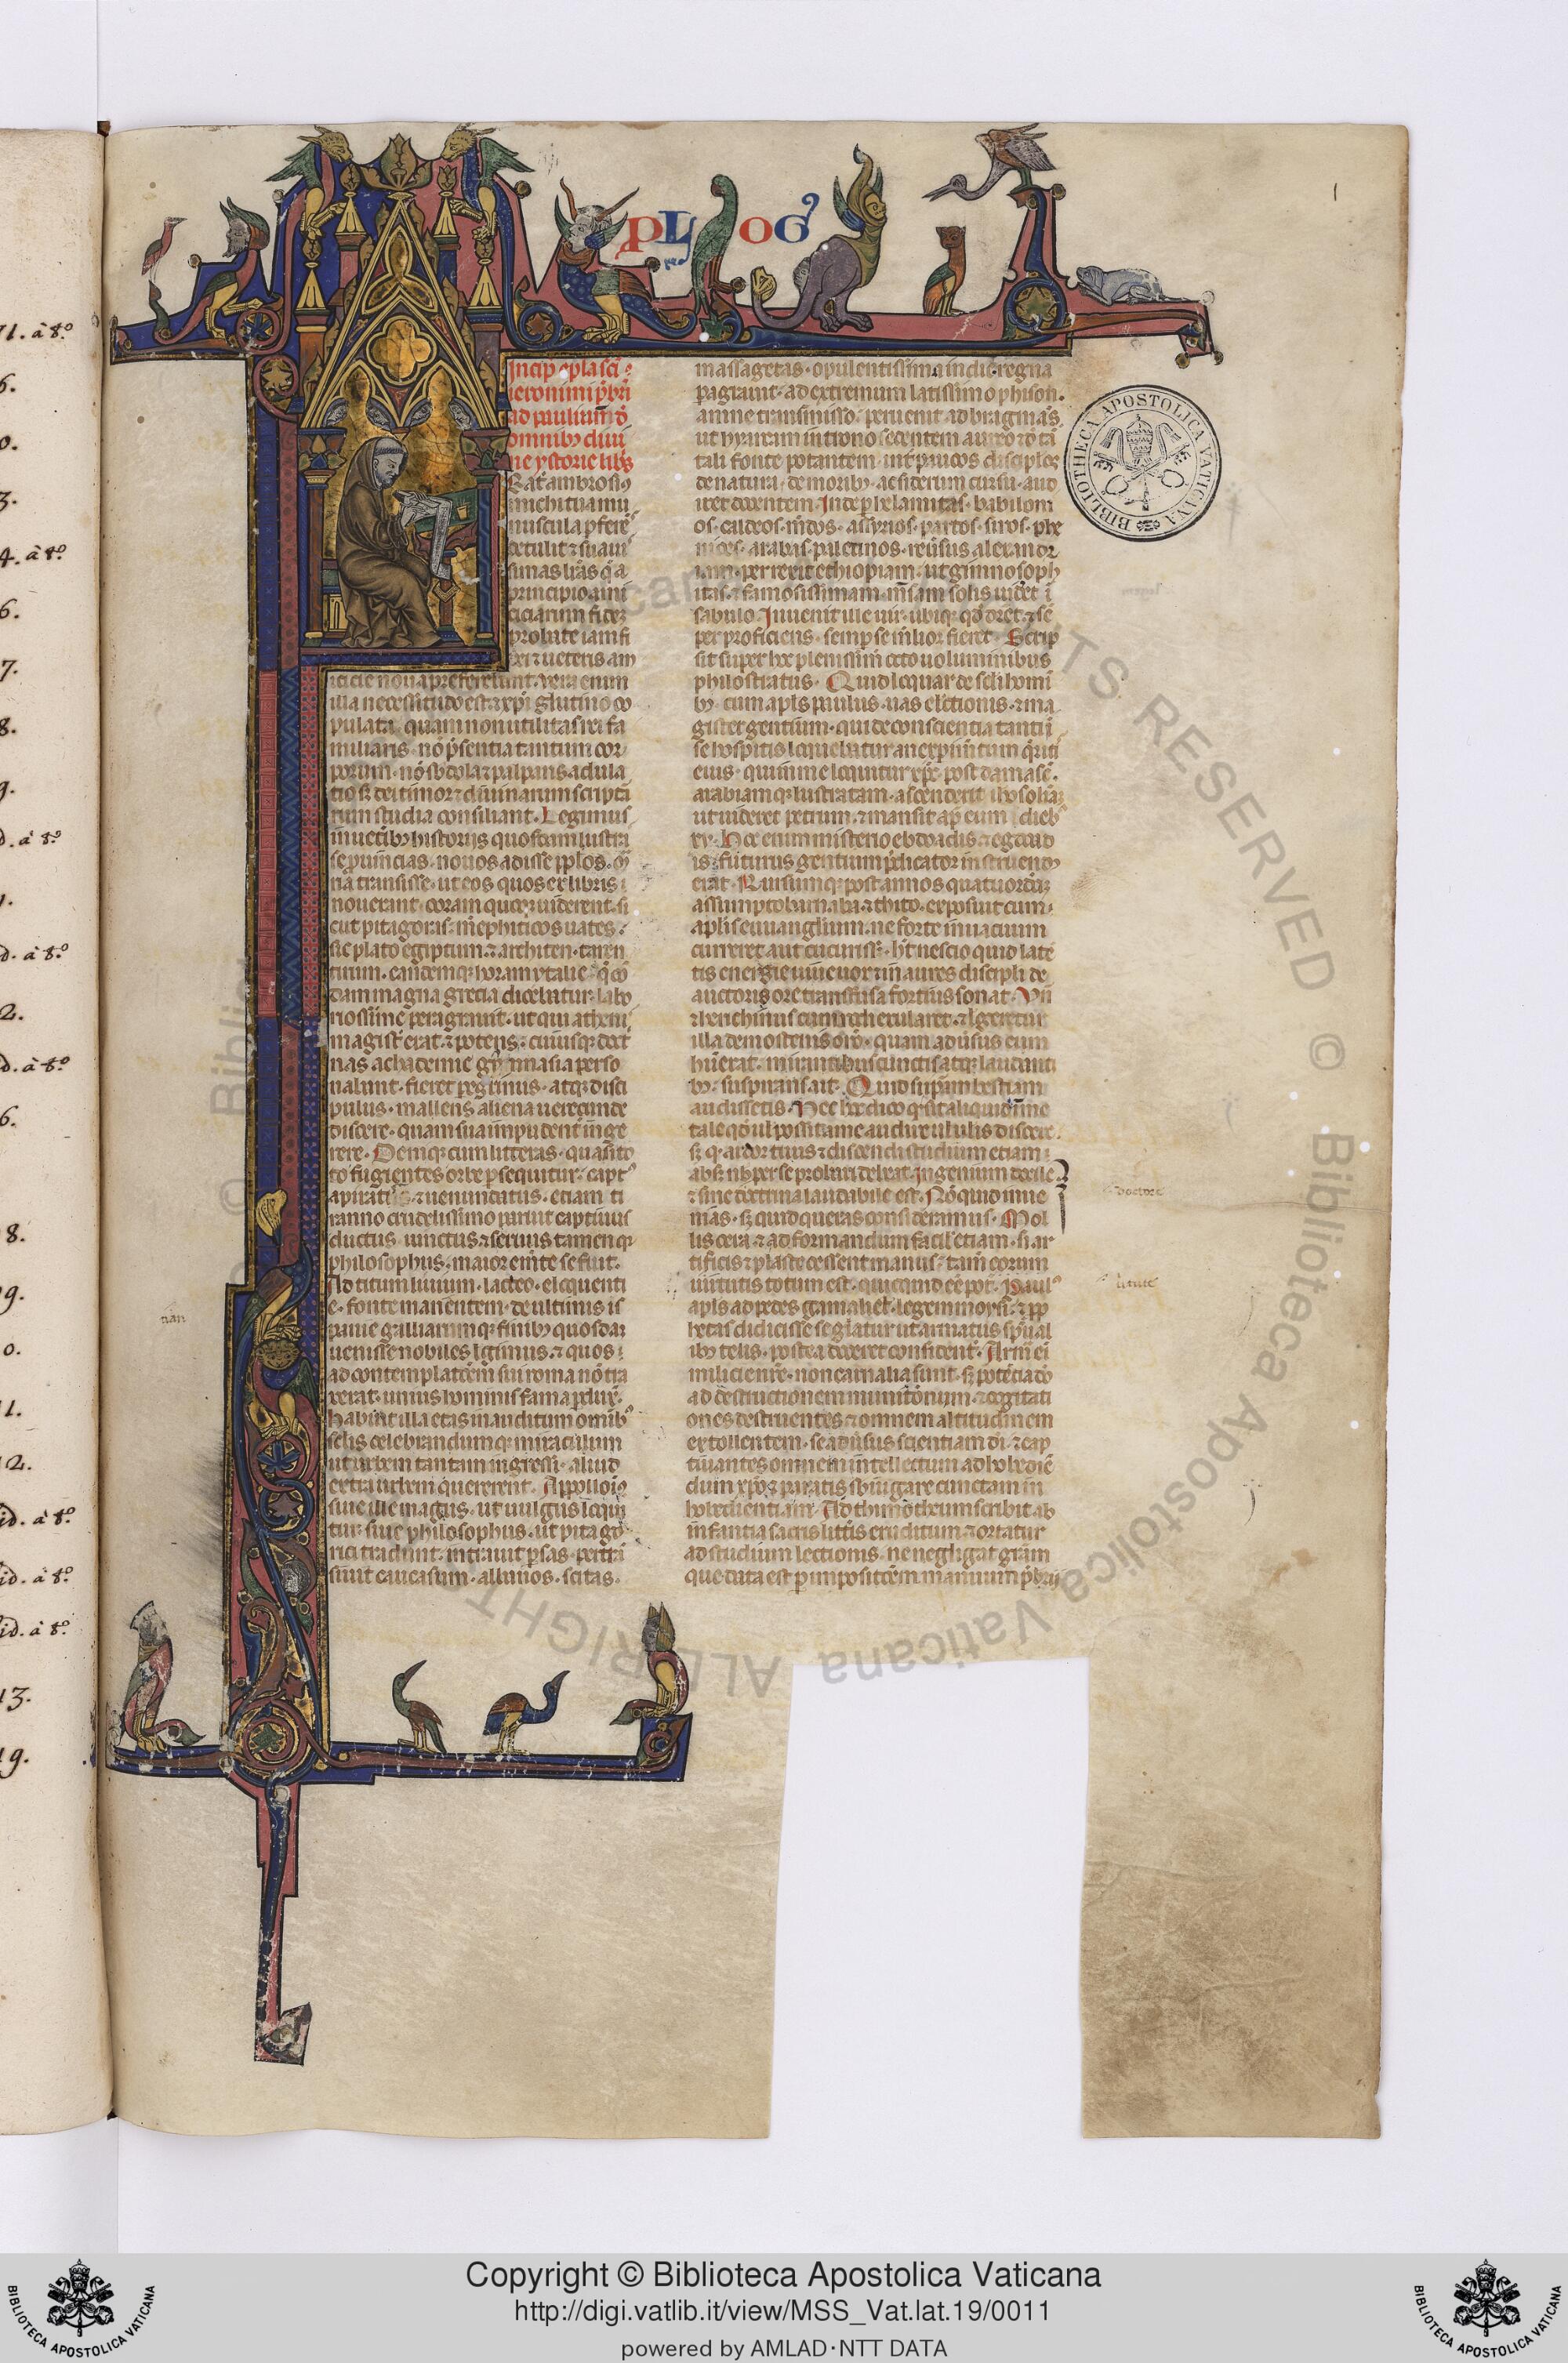 PLOG
Incip epla sci
ieronimi pbri
ad paulinum d
omnibus diui
ne ystorie libris
Frater ambrosius
michi tua mu
nuscula pferens
detulit ⁊ suauis
simas lras q a
principio ami
ciciarum fidem
probate iam fi
dei ⁊ ueteris am
icicie noua preferebant. Vera enim
illa necessitudo est ⁊ xpi glutino co
pulata. quam non utilitas rei fa
miliaris. no psentia tantum cor
porum. no sbdola ⁊ palpans adula
tio sꝫ dei timor ⁊ diuinarum scriptu
rum studia consiliant. Legimus
in ueteribus historiis quosdam lustra
se puincias. nouos adisse pplos. ma
ria transisse. ut eos quos ex libris
nouerant. coram quoqꝫ uiderent. si
cut pitagoras. mephiticos uates.
sic plato egiptum. ⁊ architen. taren
tinum. eandemqꝫ horam ytalie q con
dam magna grecia dicebatur. labo
riosissime peragrauit. ut qui atheni
magister erat. ⁊ potens. cuiusqꝫ doct
nas achademie gymnasia perso
nabant. fieret pegrinus. atqꝫ disci
pulus. mallens aliena uerecunde
discere. quam sua impudenter inge
rere. Deniqꝫ cum litteras. quasi to
to fugientes orbe psequitur. captus
a piratis. ⁊ uenundatus. etiam ti
ranno crudelissimo paruit captiuus
ductus. uinctus ⁊ seruus tamen qꝫ
philosophus. maior emente se fuit.
Ad titum liuium. lacteo. eloquenti
e. fonte manentem. de ultimis is
panie galliarumqꝫ finibꝫ quosdam
uenisse nobiles legimus. ⁊ quos
ad contemplatoem sui roma no tra
xerat. unius hominis fama pdux.
Habuit illa etas inauditum omnibus
selis celebrandumqꝫ miraculum
ut urbem tantam ingressi. aliud
extra urbem quererent. Appollonius
siue ille magus. ut uulgus loqui
tur siue philosophus. ut pitago
rici tradunt. intrauit psas. pertra
siuit caucasum. albanos. scitas.
massagetas. opulentissima indie regna
pagrauit. ad extremum latissimo phison.
amne transmisso. peruenit ad bragmas.
ut hyarcam in trono sedentem aureo ⁊ de ti
tali fonte potantem. int paucos discipulos
de natura. de moribꝫ. ac siderum cursu. aud
iret docentem. Inde p helamitas. babiloni
os. caldeos. medos. assyrios. partos. siros. phe
nices. arabas. palestinos. reuersus alexandr
iam. perrexit ethiopiam. ut gimnosoph
istas. ⁊ famosissimam. msam solis uideret i
sabulo. Inuenit ille uir. ubiqꝫ qd discet. ⁊ se
per proficiens. semp se melior fieret. Scrip
sit super hoc plenissime octo uoluminibus
philostratus. Quid loquar de seli homini
bꝫ. cum apls paulus. uas electionis. ⁊ ma
gister gentium. qui de conscientia tanti i
se hospitis loquebatur an experimentum queritis
eius. qui in me loquitur xpc. post damascum.
arabiamqꝫ lustratam. ascenderit iherosolimam
ut uideret petrum. ⁊ mansit apud eum diebus
xv. Hoc enim misterio ebdoadis ⁊ ogdoad
is. futurus gentium predicator instruendus
erat. Rursumqꝫ post annos quatuordecim
assumpto barnaba. ⁊ thito. exposuit cum
aplis euuanglium. ne forte in uacuum
curreret. aut cucurrisset. habet nescio quid late
tis energie uiue uox. ⁊ in aures discipli de
auctoris ore transfusa fortius sonat. Vn
⁊ henchinus cum rodi exularet. ⁊ legeretur
illa demostenis oro. quam aduersus eum
habuerat. mirantibus cunctis atqꝫ laudanti
bꝫ. suspirans ait. Quid si ipsam bestiam
audissetis. Nec hoc dico q sit aliquid in me
tale qd ul possit a me audire ul uelis discere.
sꝫ q. ardor tuus. ⁊ discendi studium etiam
absqꝫ nobis per se probari debeat. Ingenium docile
⁊ sine doctrina laudabile est. No quid inue
nias. sꝫ quid queras consideramus. Mol
lis cera. ⁊ ad formandum facilis etiam. si ar
tificis ⁊ plaste cessent manus. tamen eorum
uirtutis totum est. quicquid esse pot. Paulus
apls ad pedes gamaliel. legem moysi. ⁊ pp
hetas didicisse se gliatur ut armatus spiritual
ibꝫ telis. postea doceret confidenter. Arma enim
milicie nre. non carnalia sunt. sꝫ potencia deo
ad destructionem munitionum. ⁊ cogitati
ones destruentes. ⁊ omnem altitudinem
extollentem. se aduersus scientiam di. ⁊ cap
tiuantes omnem intellectum ad hobedien
dum xpo. ⁊ paratis sbiugare cunctam in
hobedientiam. Ad thimotheum scribit. ab
infantia sacris litteris eruditum. ⁊ ortatur
ad studium lectionis. ne negligat gratiam
que data est p impositoem manuum pbrii
doctore
1
BIBLIOTHECA APOSTOLICA VATICANA
© Biblioteca Apostolica Vaticana ALL RIGHTS RESERVED
Copyright © Biblioteca Apostolica Vaticana
http://digi.vatlib.it/view/MSS_Vat.lat.19/0011
powered by AMLAD·NTT DATA
BIBLIOTECA APOSTOLICA VATICANA
BIBLIOTECA APOSTOLICA VATICANA